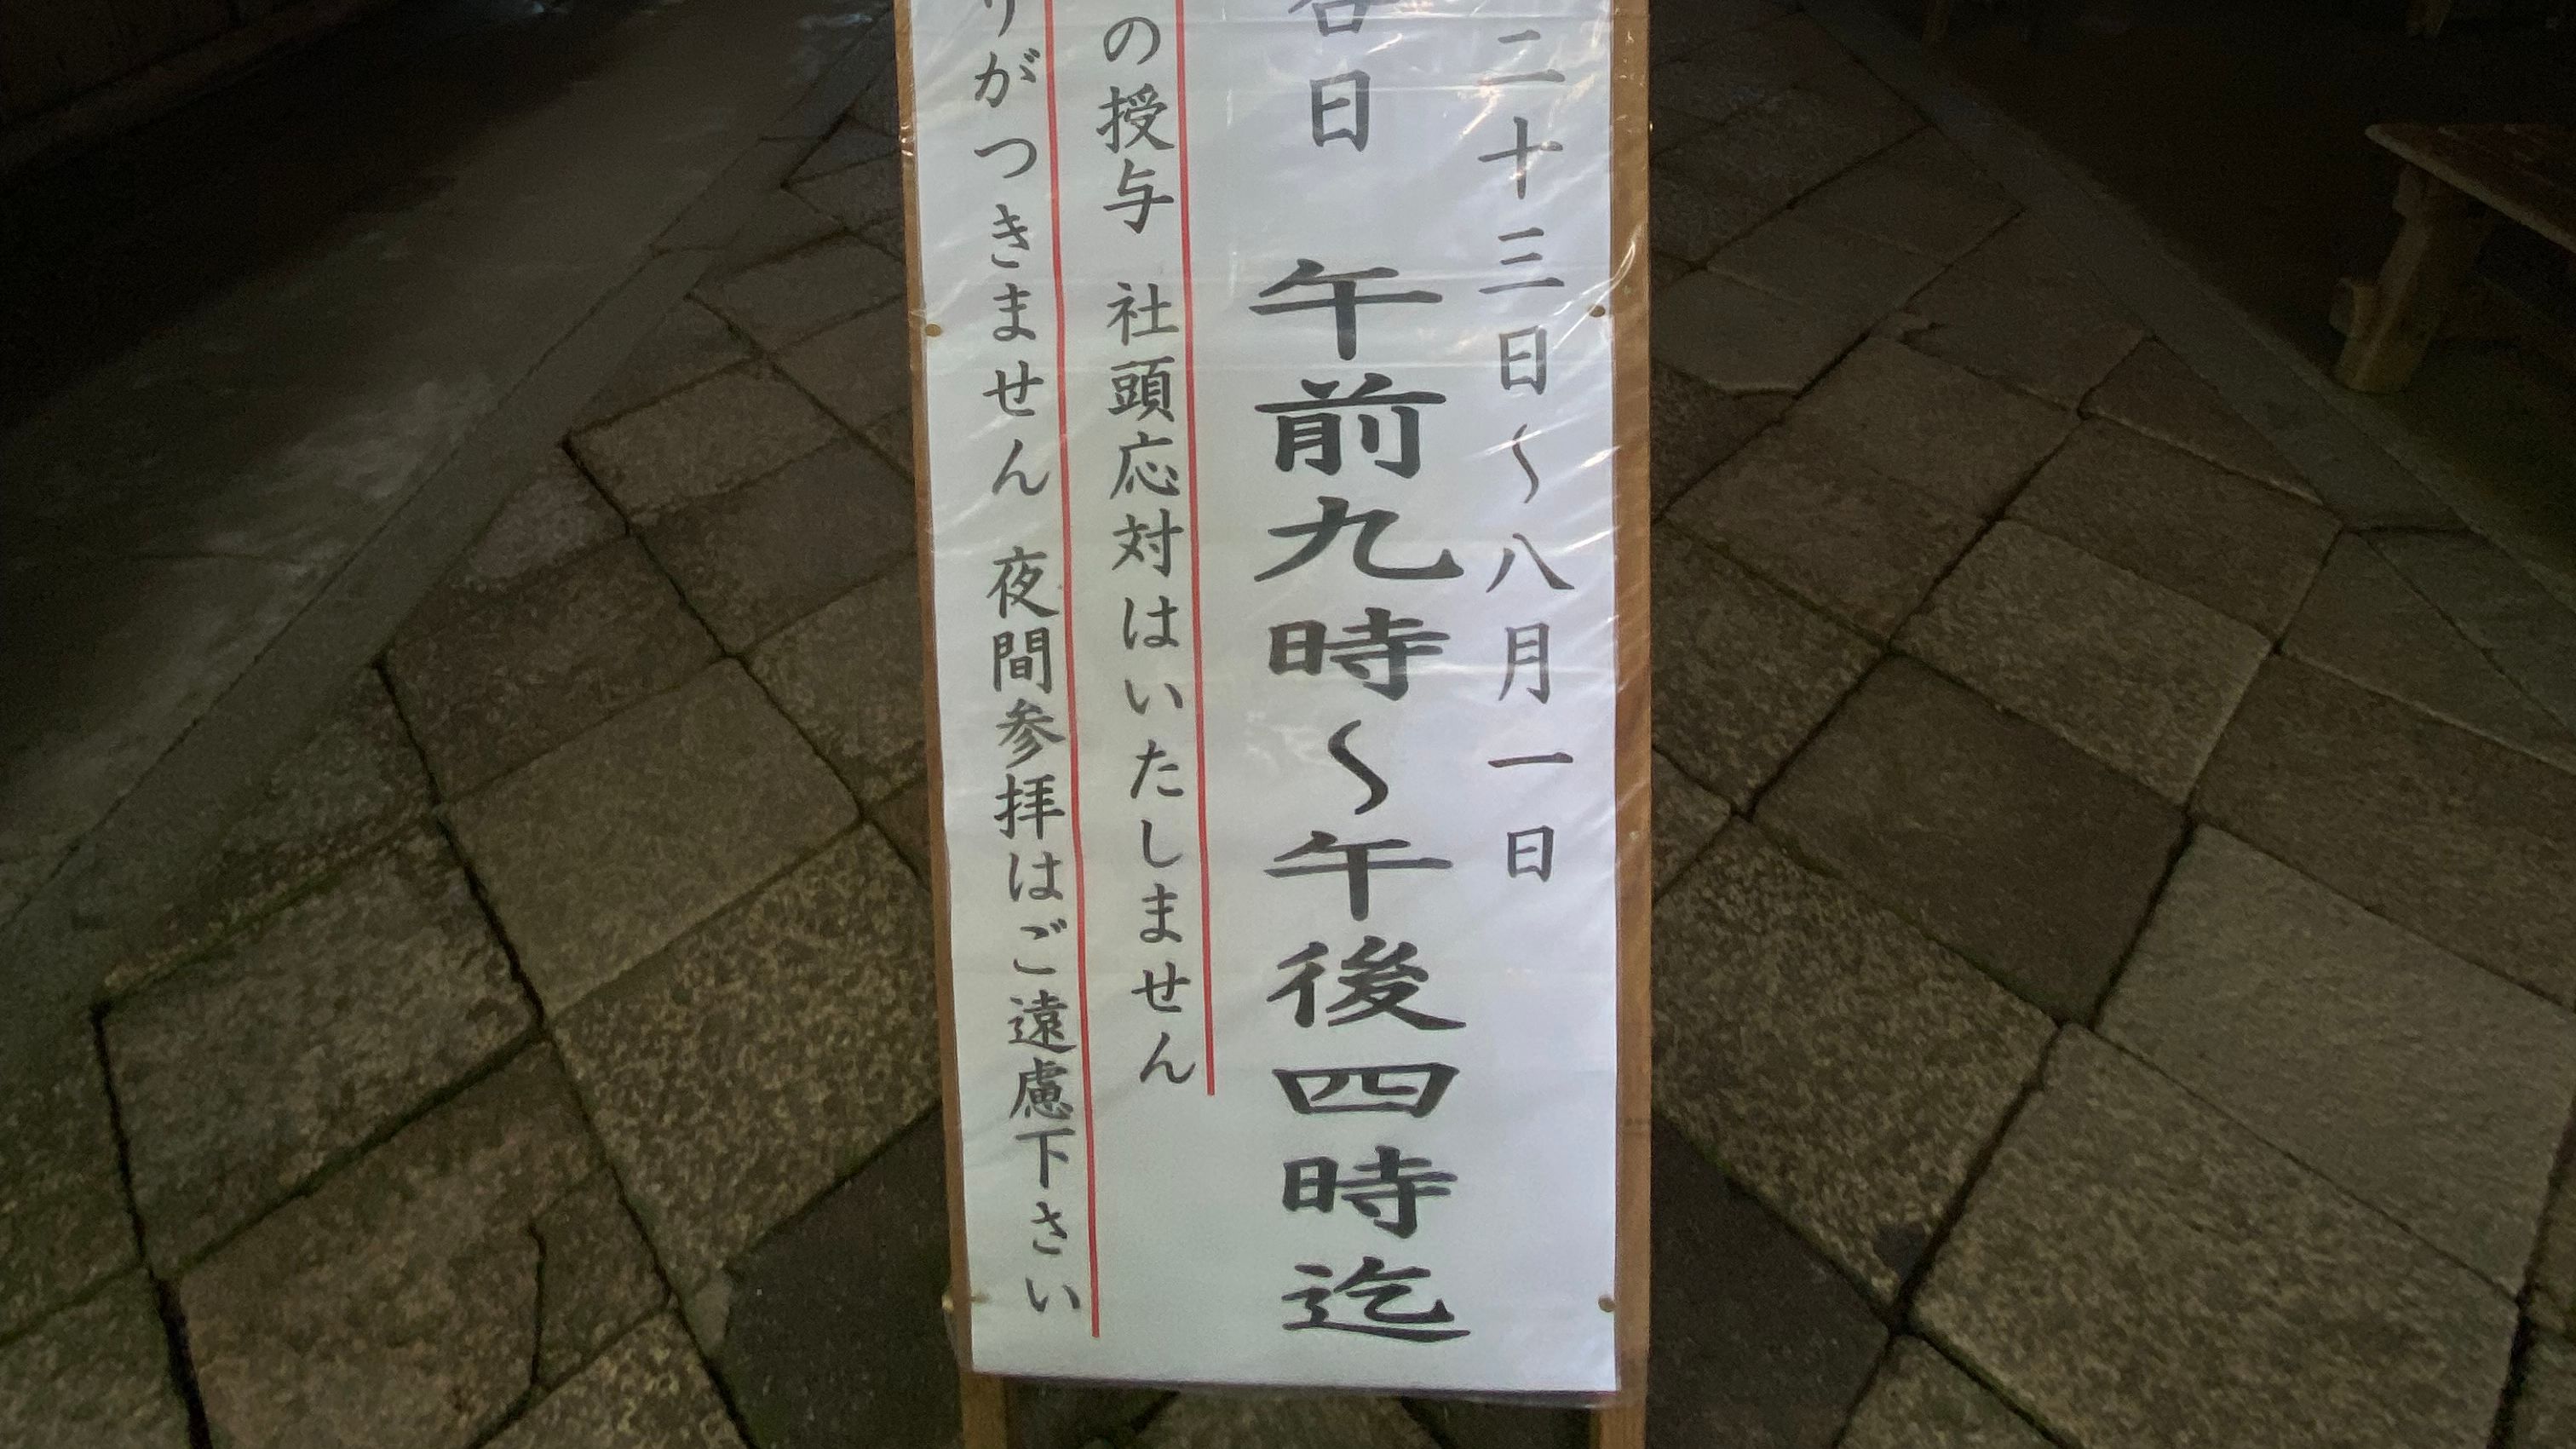 二十三日～八月一日
各日 午前九時～午後四時迄
の授与 社頭応対はいたしません
りがつきません 夜間参拝はご遠慮下さい